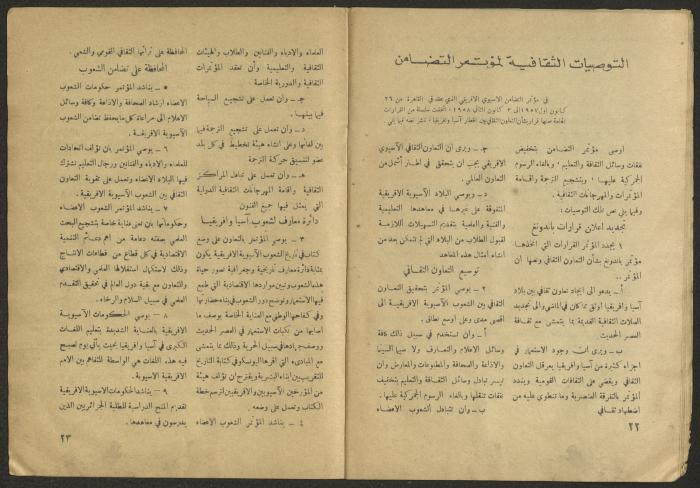 التوصيات الثقافية لمؤتمر التضامن
في مؤتمر التضامن الاسيوي الافريقي الذي عقد في القاهرة من ٢٦
كانون اول ١٩٥٧ إلى ٢ كانون الثاني ١٩٥٨ ، اتخذت سلسلة من القرارات
الهامة منها قرار بشأن التعاون الثقافي بين اقطار آسيا وافريقيا ، ننشر نصه فيما يلي .
اوصى مؤتمر التضامن بتخفيض
نفقات وسائل الثقافة والتعليم ، وبالغاء الرسوم
الجمركية عليها ، وبتشجيع الترجمة واقامة
المؤتمرات والمهرجانات الثقافية .
وفيما يلي نص تلك التوصيات :
تجديد اعلان قرارات باندونغ
١ يجدد المؤتمر القرارات التي اتخذها
مؤتمر باندونغ بشأن التعاون الثقافي ونصها أن
المؤتمر ..
أ – يدعو الى ايجاد تعاون ثقافي بين بلاد
آسيا وافريقيا اوثق مما كان في الماضي والى تجديد
الصلات الثقافية القديمة بما يتمشى مع ثقافة
العصر الحديث .
ب – ويرى ان وجود الاستعمار في
اجزاء كثيرة من آسيا وافريقيا يعرقل التعاون
الثقافي ويقضي على الثقافات القومية ويندد
المؤتمر بالتفرقة العنصرية وما تنطوي عليه من
اضطهاد ثقافي
جـ – ويرى ان التعاون الثقافي الآسيوي
الافريقي يجب ان يتحقق في اطار أشمل من
التعاون العالمي .
د – ويوصي البلاد الآسيوية الافريقية
المتفوقة على غيرها في معاهدها التعليمية
والفنية والعلمية بتقديم التسهيلات اللازمة
لقبول الطلاب من البلاد التي لم تتمكن بعد من
انشاء امثال هذه المعاهد
توسيع التعاون الثقافي
٢ – يوصي المؤتمر بتحقيق التعاون
الثقافي بين الشعوب الآسيوية الافريقية الى
أقصى مدى وعلى اوسع نطاق .
أ – وان تستخدم في سبيل ذلك كافة
وسائل الاعلام والتعارف ولا سيما السينما
والاذاعة والصحافة والمطبوعات والمعارض وان
ييسر تبادل وسائل الثقافة والتعليم بتخفيض
نفقات تنقلها وبالغاء الرسوم الجمركية عليها .
ب – وان تتبادل الشعوب الاعضاء
٢٢
العلماء والادباء والفنانين والطلاب والهيئات
الثقافية والتعليمية وأن تعقد المؤتمرات
الثقافية والدورية الخاصة .
جـ – وان تعمل على تشجيع السياحة
فيما بينها .
د – وان تعمل على تشجيع الترجمة فيما
بين لغاتها وعلى انشاء هيئة تخطيط في كل بلد
عضو لتنسيق حركة الترجمة
هـ – وان تعمل على تبادل المراكز
الثقافية واقامة المهرجانات الثقافية الدولية
التي يمثل فيها جميع الفنون
دائرة معارف لشعوب آسيا وافريقيا
٣ – يوصي المؤتمر بالتعاون على وضع
كتاب في تاريخ الشعوب الآسيوية الافريقية يكون
بمثابة دائرة معارف تاريخية وجغرافية تصور حياة
هذه الشعوب وتبين مواردها الاقتصادية التي طمع
فيها الاستعمار وتوضح دور الشعوب في بناء حضارتها
وفي كفاحها الوطني مع العناية الخاصة بوصف ما
اصابها من نكبات الاستعمار في العصر الحديث
ووصف جهادها في سبيل الحرية وذلك بما يتمشى
مع المبادىء التي اقرها اليونسكو في كتابة التاريخ
للتقريب بين ابناء البشرية ويقترح ان تؤلف هيئة
من المؤرخين الآسيويين والافريقيين لرسم خطة
الكتاب وتعمل على وضعه .
٤ – يناشد المؤتمر الشعوب الاعضاء
المحافظة على تراثها الثقافي القومي والشعبي .
المحافظة على تضامن الشعوب
٥ – يناشد المؤتمر حكومات الشعوب
الاعضاء ارشاد الصحافة والاذاعة وكافة وسائل
الاعلام الى مراعاة كل ما يحفظ تضامن الشعوب
الآسيوية الافريقية .
٦ – يوصي المؤتمر بتأليف اتحادات
للعلماء والادباء والفنانين ورجال التعليم تشترك
فيها البلاد الاعضاء وتعمل على تقوية التعاون
الثقافي بين الشعوب الآسيوية الافريقية .
٧ – يناشد المؤتمر الشعوب الاعضاء
وحكوماتها بأن تعنى عناية خاصة بتشجيع البحث
العلمي بصفته دعامة من اهم دعائم التنمية
الاقتصادية في كل قطاع من قطاعات الانتاج
وذلك لاستكمال استقلالها العلمي والاقتصادي
والتعاون مع بقية دول العالم في تحقيق التقدم
العلمي في سبيل السلام والرخاء .
٨ – يوصي الحكومات الاسيوية
الافريقية بالعناية الشديدة بتعليم اللغات
الكبرى في آسيا وافريقيا بحيث يأتي يوم تصبح
فيه هذه اللغات هي الواسطة للتفاهم بين الامم
الافريقية الاسيوية .
٩ – يناشد الحكومات الاسيوية الافريقية
تقديم المنح الدراسية للطلبة الجزائريين الذين
يدرسون في معاهدها .
٢٣